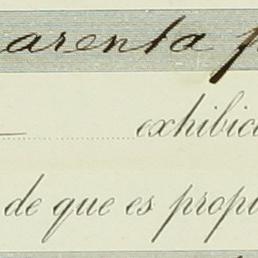 arenta p
exhibic
de que es propi